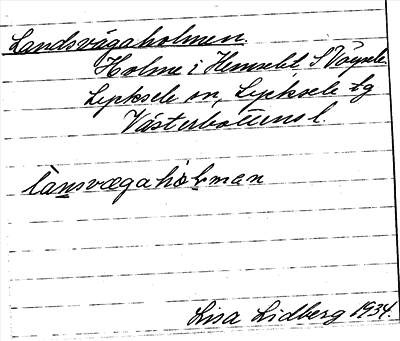 Landsvägaholmen
Holme i Hemselet, S Vägsele
Lycksele sn, Lycksele tg
Västerbottens l.
lànsvægahòlman
Lisa Lidberg 1934